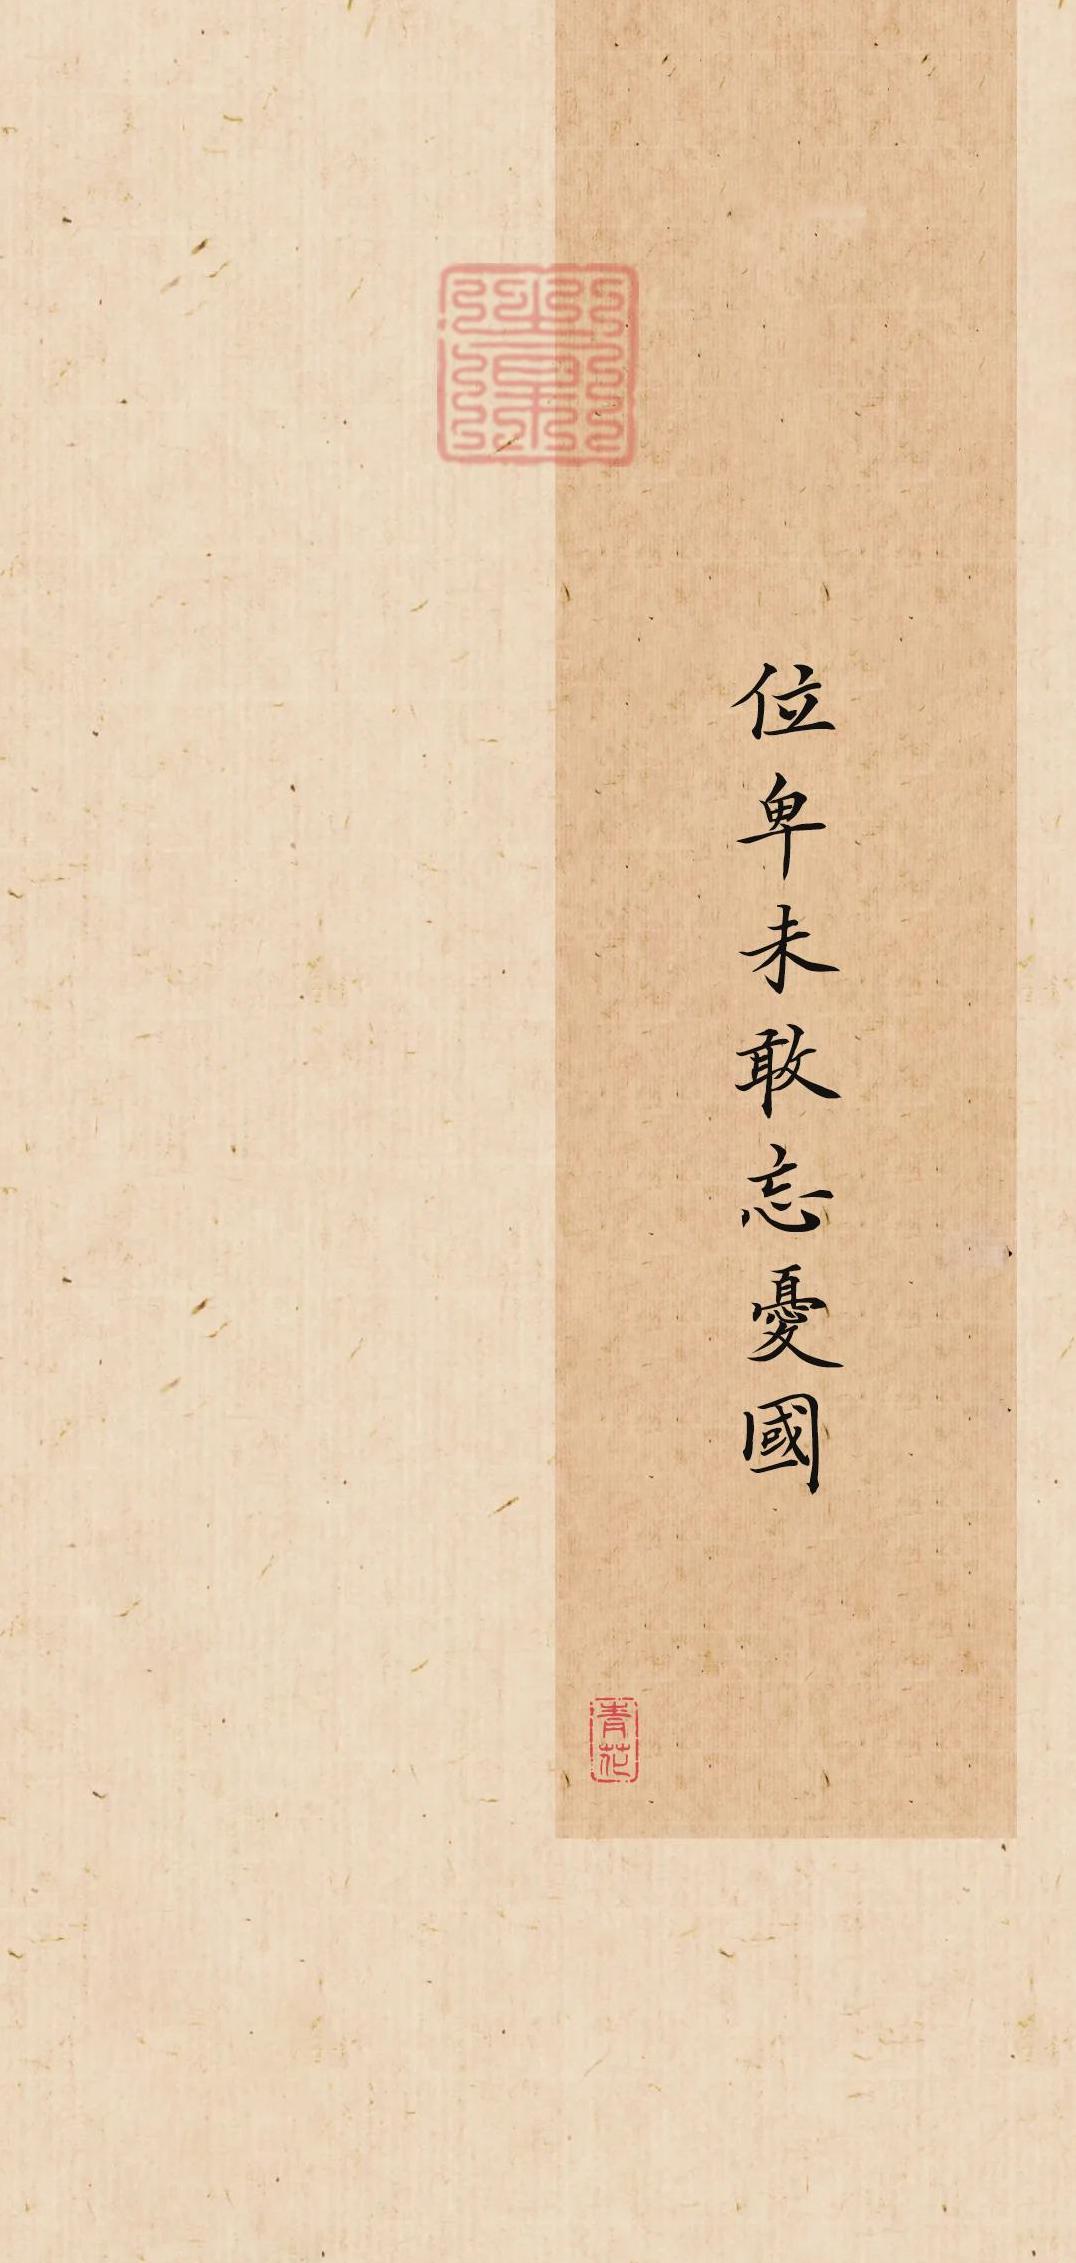 位卑未敢忘憂國
青花